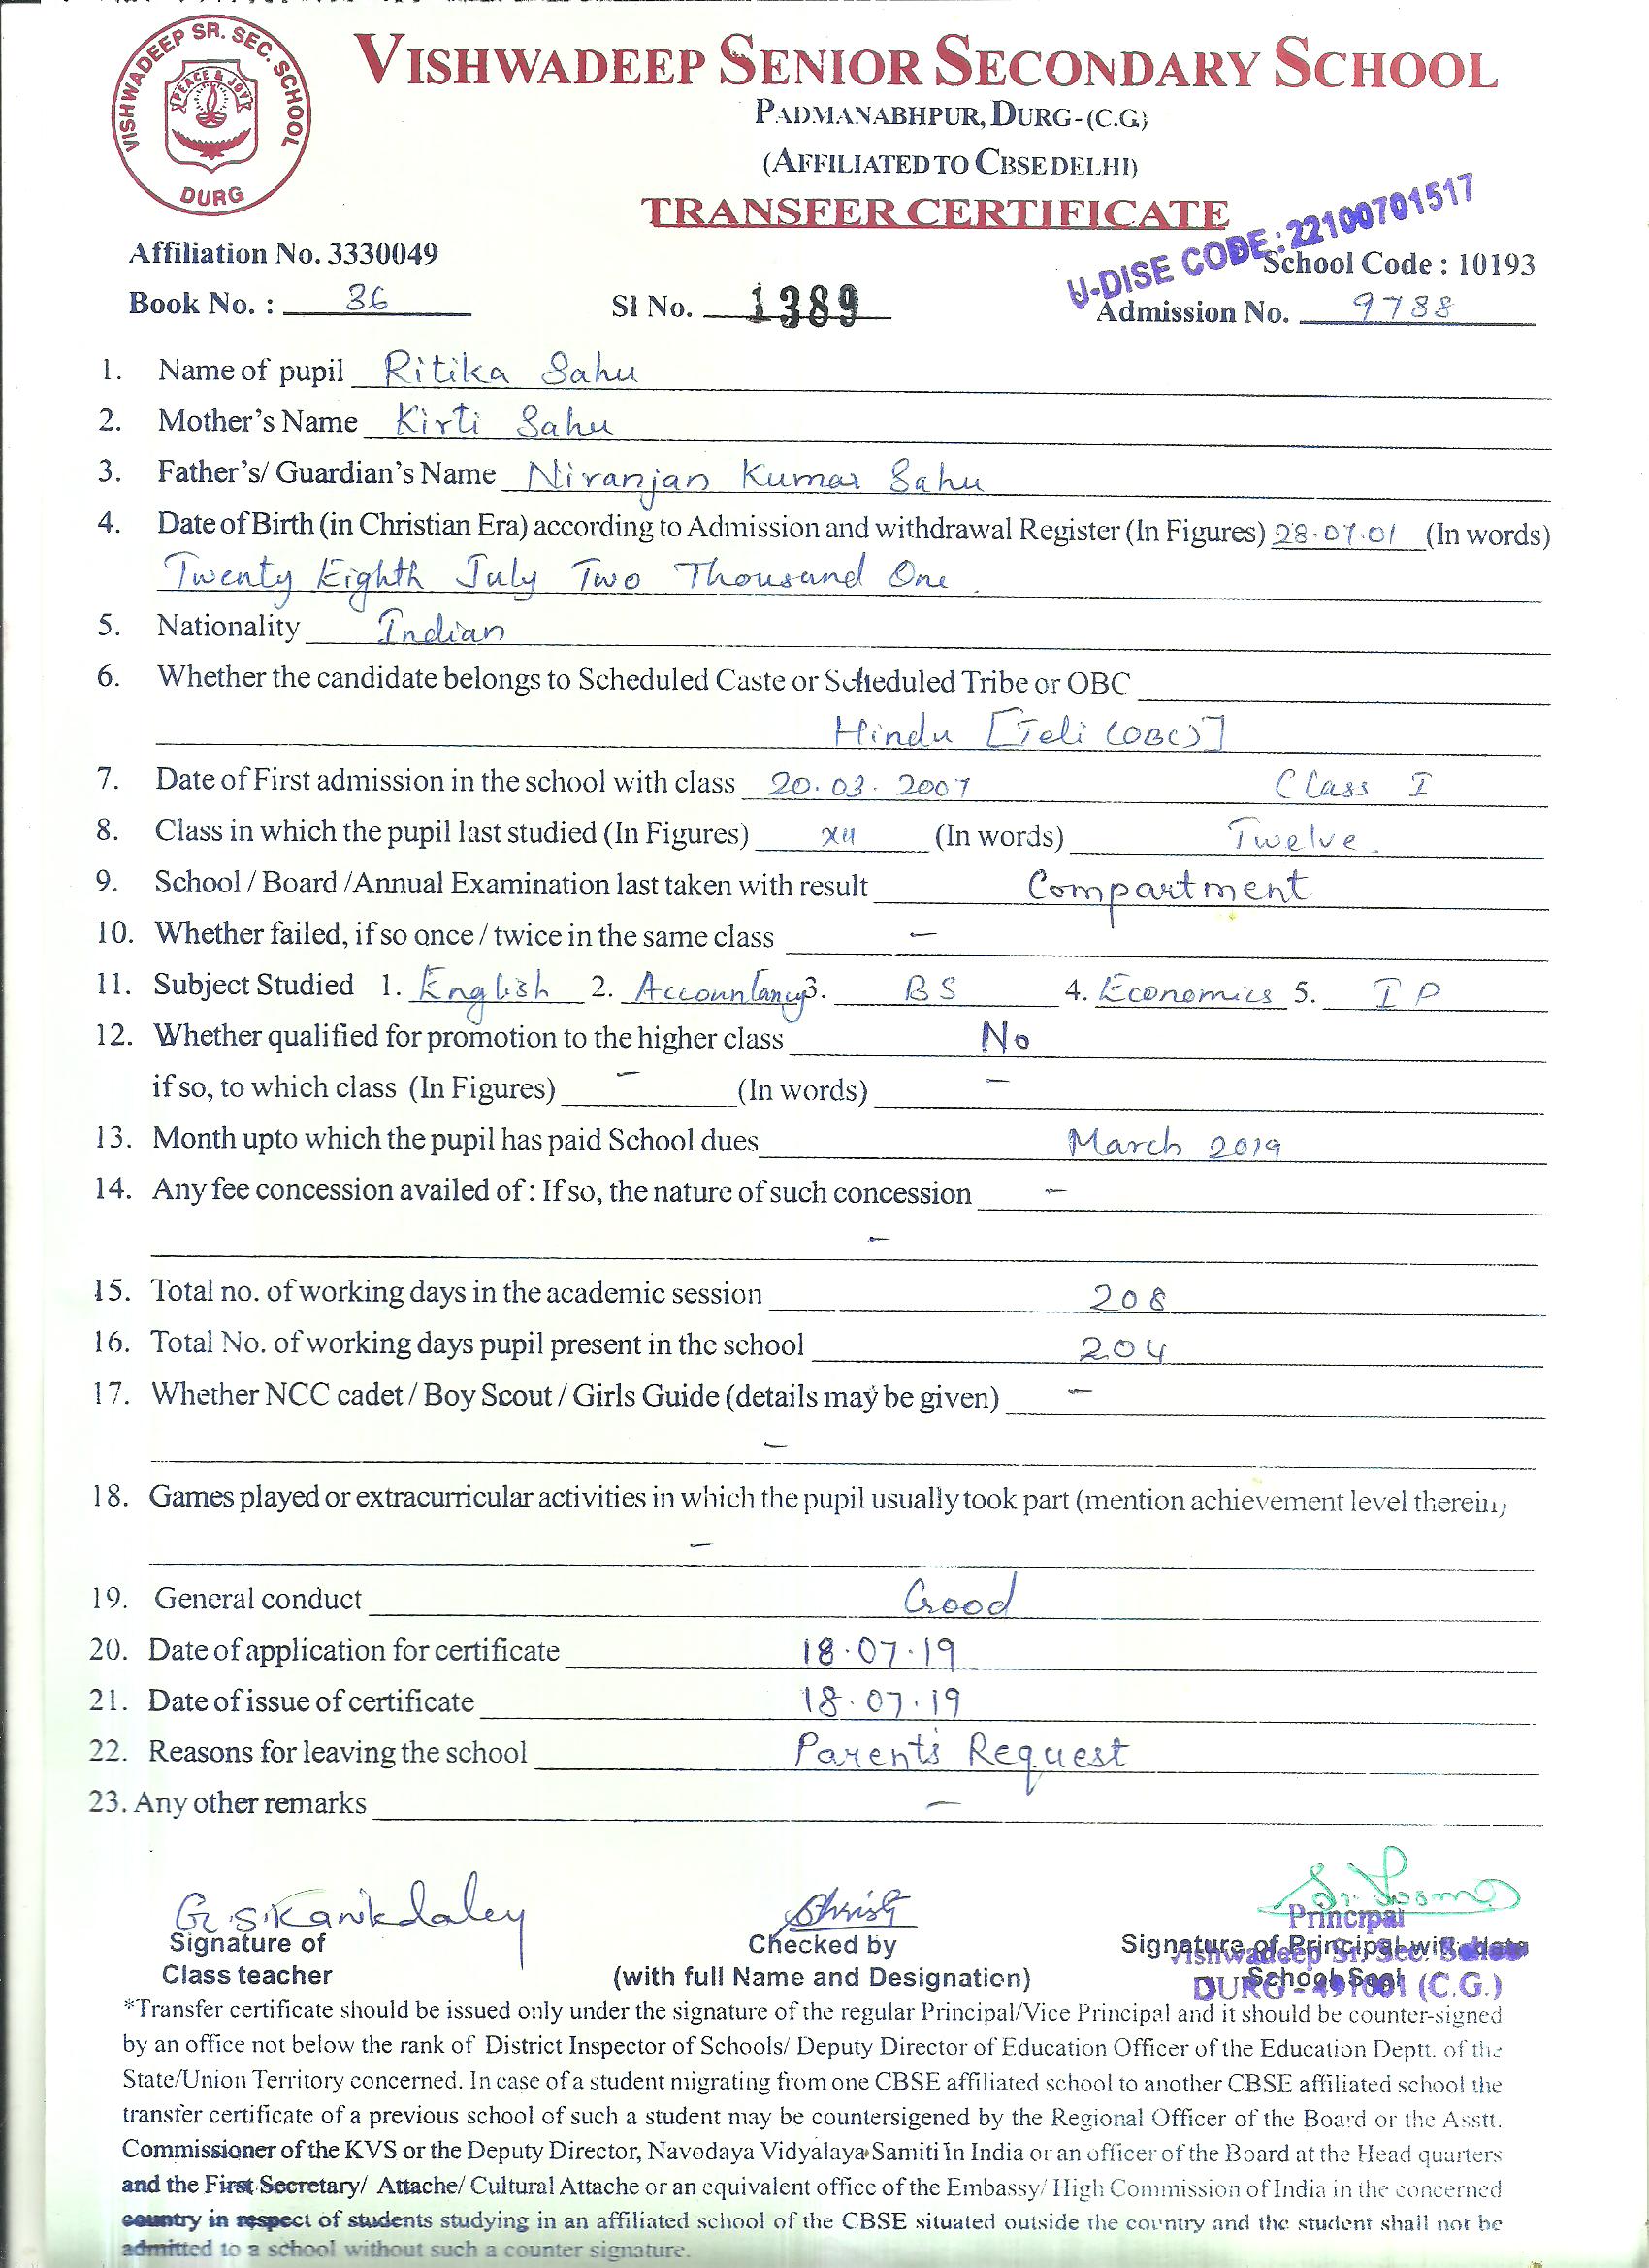 VISHWADEEP SR. SEC. SCHOOL
PEACE & JOY
DURG
VISHWADEEP SENIOR SECONDARY SCHOOL
PADMANABHPUR, DURG-(C.G)
(AFFILIATED TO CBSE DELHI)
TRANSFER CERTIFICATE
U-DISE CODE: 22100701517
Affiliation No. 3330049 School Code : 10193
Book No. : 36 Sl No. 1389 Admission No. 9788
1. Name of pupil Ritika Sahu
2. Mother's Name Kirti Sahu
3. Father's/ Guardian's Name Niranjan Kumar Sahu
4. Date of Birth (in Christian Era) according to Admission and withdrawal Register (In Figures) 28.07.01 (In words)
Twenty Eighth July Two Thousand One
5. Nationality Indian
6. Whether the candidate belongs to Scheduled Caste or Scheduled Tribe or OBC
Hindu [Teli (OBC)]
7. Date of First admission in the school with class 20.03.2007 Class I
8. Class in which the pupil last studied (In Figures) XII (In words) Twelve.
9. School / Board /Annual Examination last taken with result Compartment
10. Whether failed, if so once / twice in the same class –
11. Subject Studied 1. English 2. Accountancy 3. BS 4. Economics 5. IP
12. Whether qualified for promotion to the higher class No
if so, to which class (In Figures) – (In words) –
13. Month upto which the pupil has paid School dues March 2019
14. Any fee concession availed of : If so, the nature of such concession –
–
15. Total no. of working days in the academic session 208
16. Total No. of working days pupil present in the school 204
17. Whether NCC cadet / Boy Scout / Girls Guide (details may be given) –
–
18. Games played or extracurricular activities in which the pupil usually took part (mention achievement level therein)
–
19. General conduct Good
20. Date of application for certificate 18.07.19
21. Date of issue of certificate 18.07.19
22. Reasons for leaving the school Parent's Request
23. Any other remarks –
Principal
Signature of Checked by Signature of Principal with date
Vishwadeep Sr. Sec. School
Class teacher (with full Name and Designation) School Seal
DURG - 491001 (C.G.)
*Transfer certificate should be issued only under the signature of the regular Principal/Vice Principal and it should be counter-signed
by an office not below the rank of District Inspector of Schools/ Deputy Director of Education Officer of the Education Deptt. of the
State/Union Territory concerned. In case of a student migrating from one CBSE affiliated school to another CBSE affiliated school the
transfer certificate of a previous school of such a student may be countersigened by the Regional Officer of the Board or the Asstt.
Commissioner of the KVS or the Deputy Director, Navodaya Vidyalaya Samiti in India or an officer of the Board at the Head quarters
and the First Secretary/ Attache/ Cultural Attache or an equivalent office of the Embassy/ High Commission of India in the concerned
country in respect of students studying in an affiliated school of the CBSE situated outside the country and the student shall not be
admitted to a school without such a counter signature.